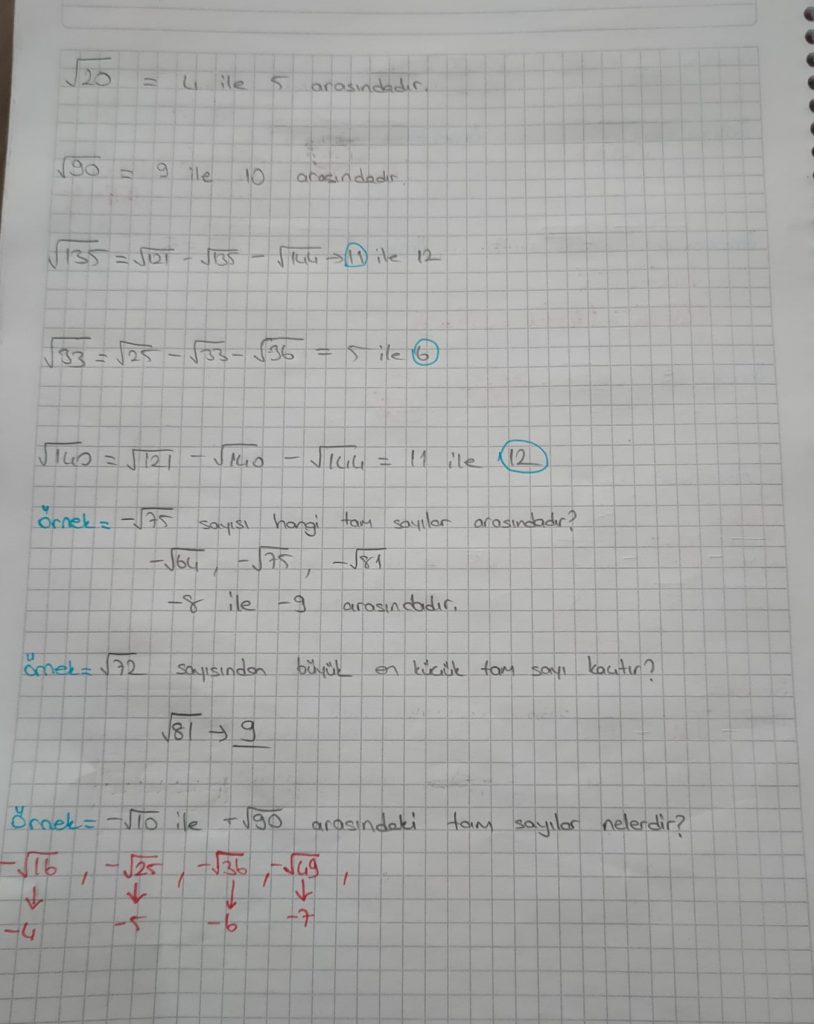 √20 = 4 ile 5 arasındadır.
√90 = 9 ile 10 arasındadır.
√135 = √121 - √135 - √144 → 11 ile 12
√33 = √25 - √33 - √36 = 5 ile 6
√140 = √121 - √140 - √144 = 11 ile 12
örnek = -√75 sayısı hangi tam sayılar arasındadır?
-√64, -√75, -√81
-8 ile -9 arasındadır.
örnek = √72 sayısından büyük en küçük tam sayı kaçtır?
√81 → 9
Örnek = -√10 ile -√90 arasındaki tam sayılar nelerdir?
-√16, -√25, -√36, -√49,
↓ ↓ ↓ ↓
-4 -5 -6 -7